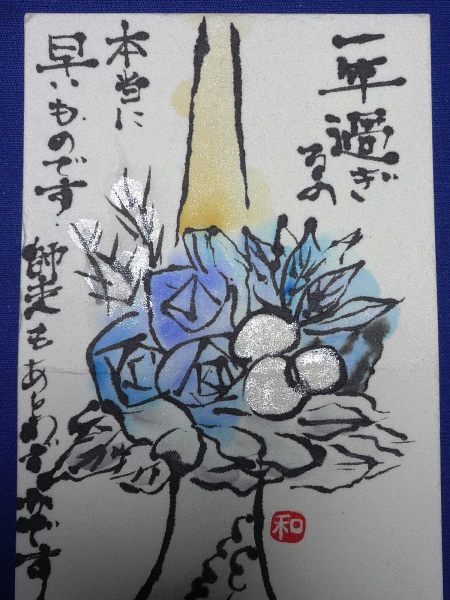 一年
過ぎ
るの
本当に
早いものです
師走もあとわずかです
和